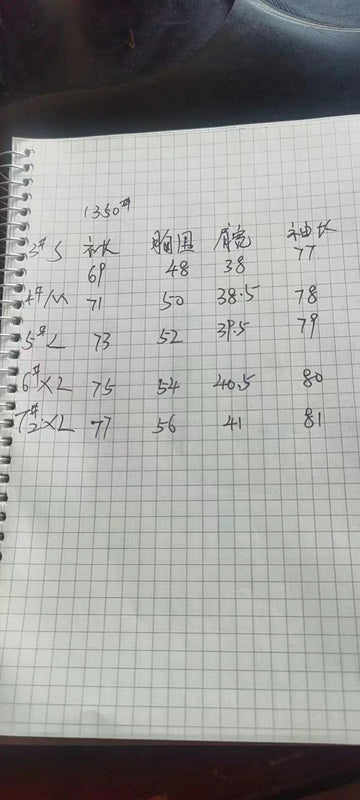 1350#
3# S 衣长 胸围 肩宽 袖长
69 48 38 77
4# M 71 50 38.5 78
5# L 73 52 39.5 79
6# XL 75 54 40.5 80
7# 2XL 77 56 41 81